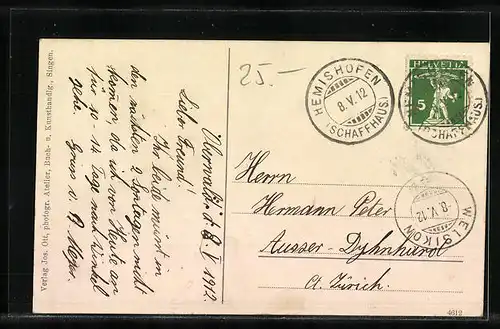 Verlag Jos. Ott, photogr. Atelier, Buch- u. Kunsthandlg., Singen.
Oberwald, d. 8. V 1912.
Lieber Freund!
Ihr beide müsst in
den nächsten 2 Sonntagen nicht
kommen, da ich von Heute an
für 10 - 14 Tage nach
gehe.
Gruss v.
25.—
HEMISHOFEN
8.V.12
(SCHAFFHAUS.)
HELVETIA
5
(SCHAFFHAUS.)
-8.V.12
WELSIKON
Herrn
Hermann Peter
Ausser-Dynhard
Kt. Zürich.
4612